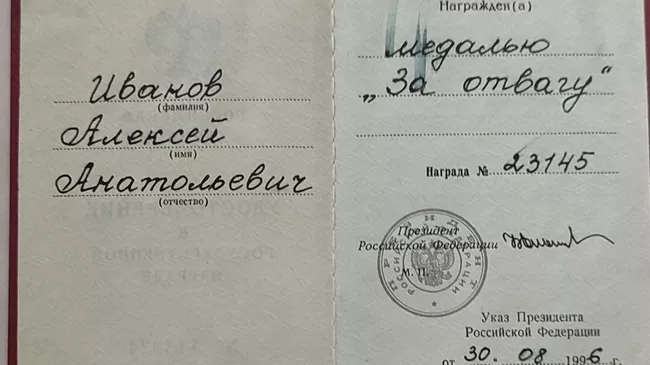 Иванов
(фамилия)
Алексей
(имя)
Анатольевич
(отчество)
Награжден(а)
медалью
„За отвагу“
Награда № 23145
Президент
Российской Федерации
М. П.
Указ Президента
Российской Федерации
от 30. 08 1996